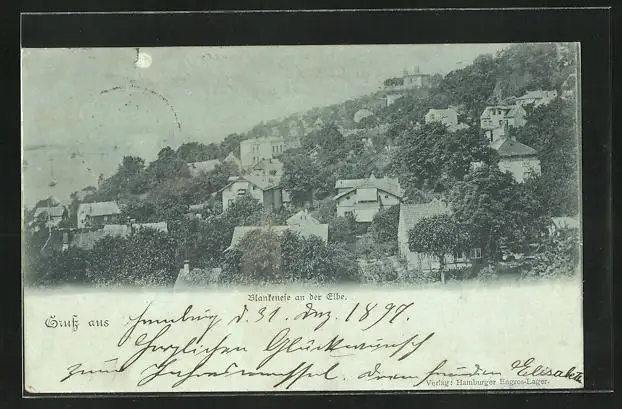 Blankenese an der Elbe.
Gruß aus Hamburg d 31. Dez. 1897.
Herzlichen Glückwunsch
zum Jahreswechsel. Elisabeth
Verlag: Hamburger Engros-Lager.